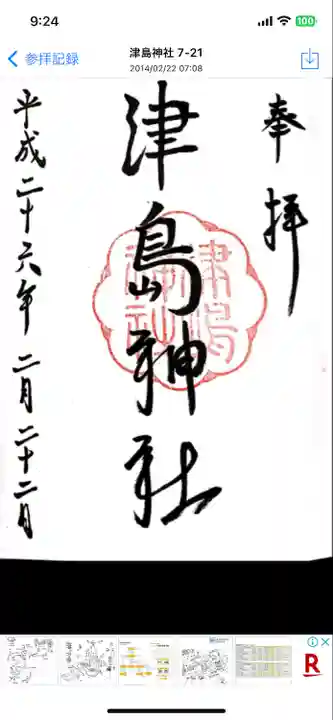 9:24
100
参拝記録
津島神社 7-21
2014/02/22 07:08
奉拝
津島神社
平成二十六年 二月 二十二日
津島
神社
R